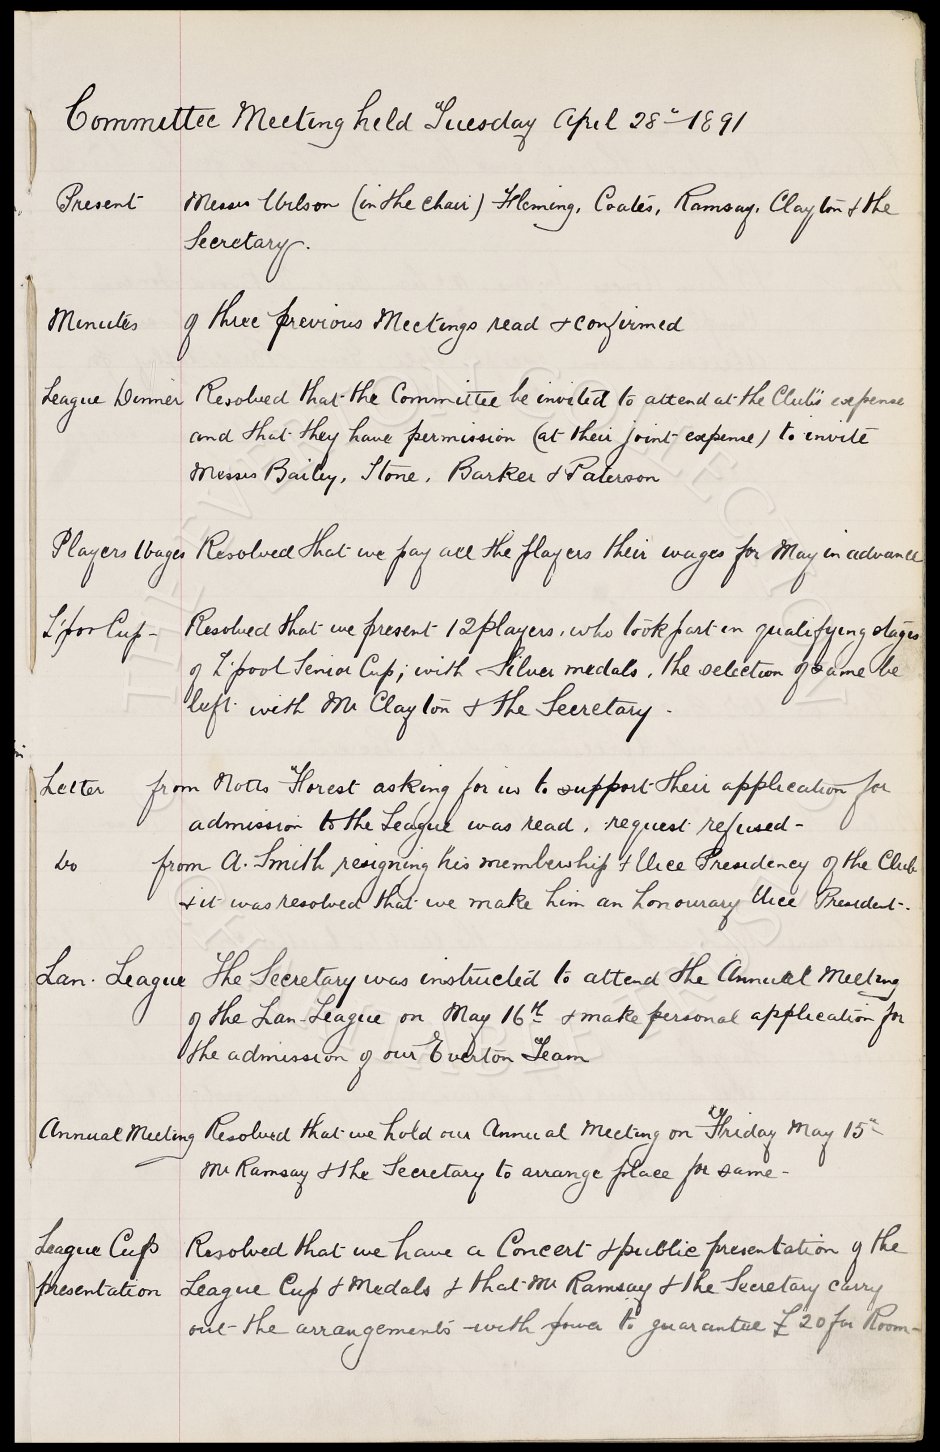 Committee Meeting held Tuesday April 28th 1891
Present Messrs Wilson (in the chair) Fleming, Coates, Ramsay, Clayton & the
Secretary.
Minutes of three previous Meetings read & confirmed
League Dinner Resolved that the Committee be invited to attend at the Club's expense
and that they have permission (at their joint expense) to invite
Messrs Bailey, Stone, Barker & Paterson
Players Wages Resolved that we pay all the players their wages for May in advance
L'pool Cup - Resolved that we present 12 players, who took part in qualifying stages
of L'pool Senior Cup; with Silver medals, the selection of same be
left with Mr Clayton & the Secretary.
Letter from Notts Forest asking for us to support their application for
admission to the League was read, request refused -
Do from A. Smith resigning his membership & Vice Presidency of the Club
& it was resolved that we make him an honourary Vice President.
Lan. League The Secretary was instructed to attend the Annual Meeting
of the Lan. League on May 16th & make personal application for
the admission of our Everton Team
Annual Meeting Resolved that we hold our Annual Meeting on Friday May 15th
Mr Ramsay & the Secretary to arrange place for same -
League Cup Resolved that we have a Concert & public presentation of the
presentation League Cup & Medals & that Mr Ramsay & the Secretary carry
out the arrangements with power to guarantee £20 for Room -
THE EVERTON COLLECTION